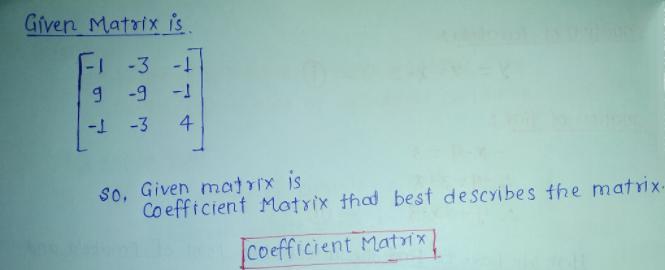 Given Matrix is.
-1 -3 -1
9 -9 -1
-1 -3 4
so, Given matrix is
Coefficient Matrix that best describes the matrix.
Coefficient Matrix